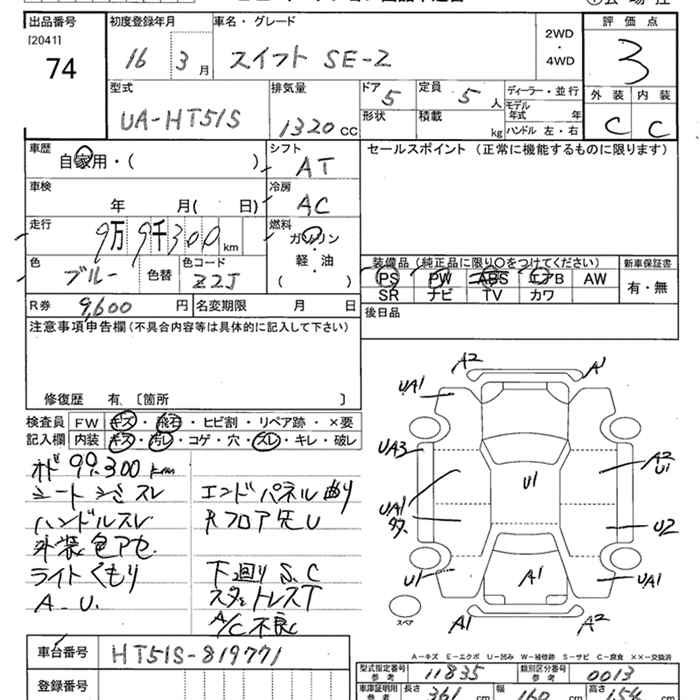 出品番号 初度登録年月 車名・グレード 評価点
[2041] 74 16 3月 スイフト SE-Z 2WD・4WD 3
型式 排気量 ドア 5 定員 5人 ディーラー・並行 外装 内装
UA-HT51S 1320cc 形状 積載 kg モデル年式 年 C C
ハンドル 左・右
車歴 シフト セールスポイント (正常に機能するものに限ります)
自家用・( ) AT
車検 冷房
年 月( 日) AC
走行 燃料
9万9千300km ガソリン・軽・油
色 色コード 装備品(純正品に限り○をつけてください) 新車保証書
ブルー 色替 Z2J ( ) PS PW ABS エアB AW 有・無
SR ナビ TV カワ
R券 9,600円 名変期限 月 日 後日品
注意事項申告欄(不具合内容等は具体的に記入して下さい)
修復歴 有〔箇所 〕
検査員 FW キズ・飛石・ヒビ割・リペア跡・×要
記入欄 内装 キズ・汚レ・コゲ・穴・スレ・キレ・破レ
オド 99,300km
シートシミスレ エンドパネル曲り
ハンドルスレ Rフロア先U
外装色アセ
ライトくもり 下廻りS.C
A_U. スタットレスT
A/C不良
A2 A1
UA1
UA3 A2 U1
U1
UA1 U2
U1 A1 UA1
スペア A1 A2
A-キズ E-エクボ U-凹み W-補修跡 S-サビ C-腐食 ××-交換済
車台番号 HT51S-819771 型式指定番号 参考 11835 類別区分番号 参考 0013
登録番号 車庫証明用 参考 長さ 361cm 幅 160cm 高さ 154cm